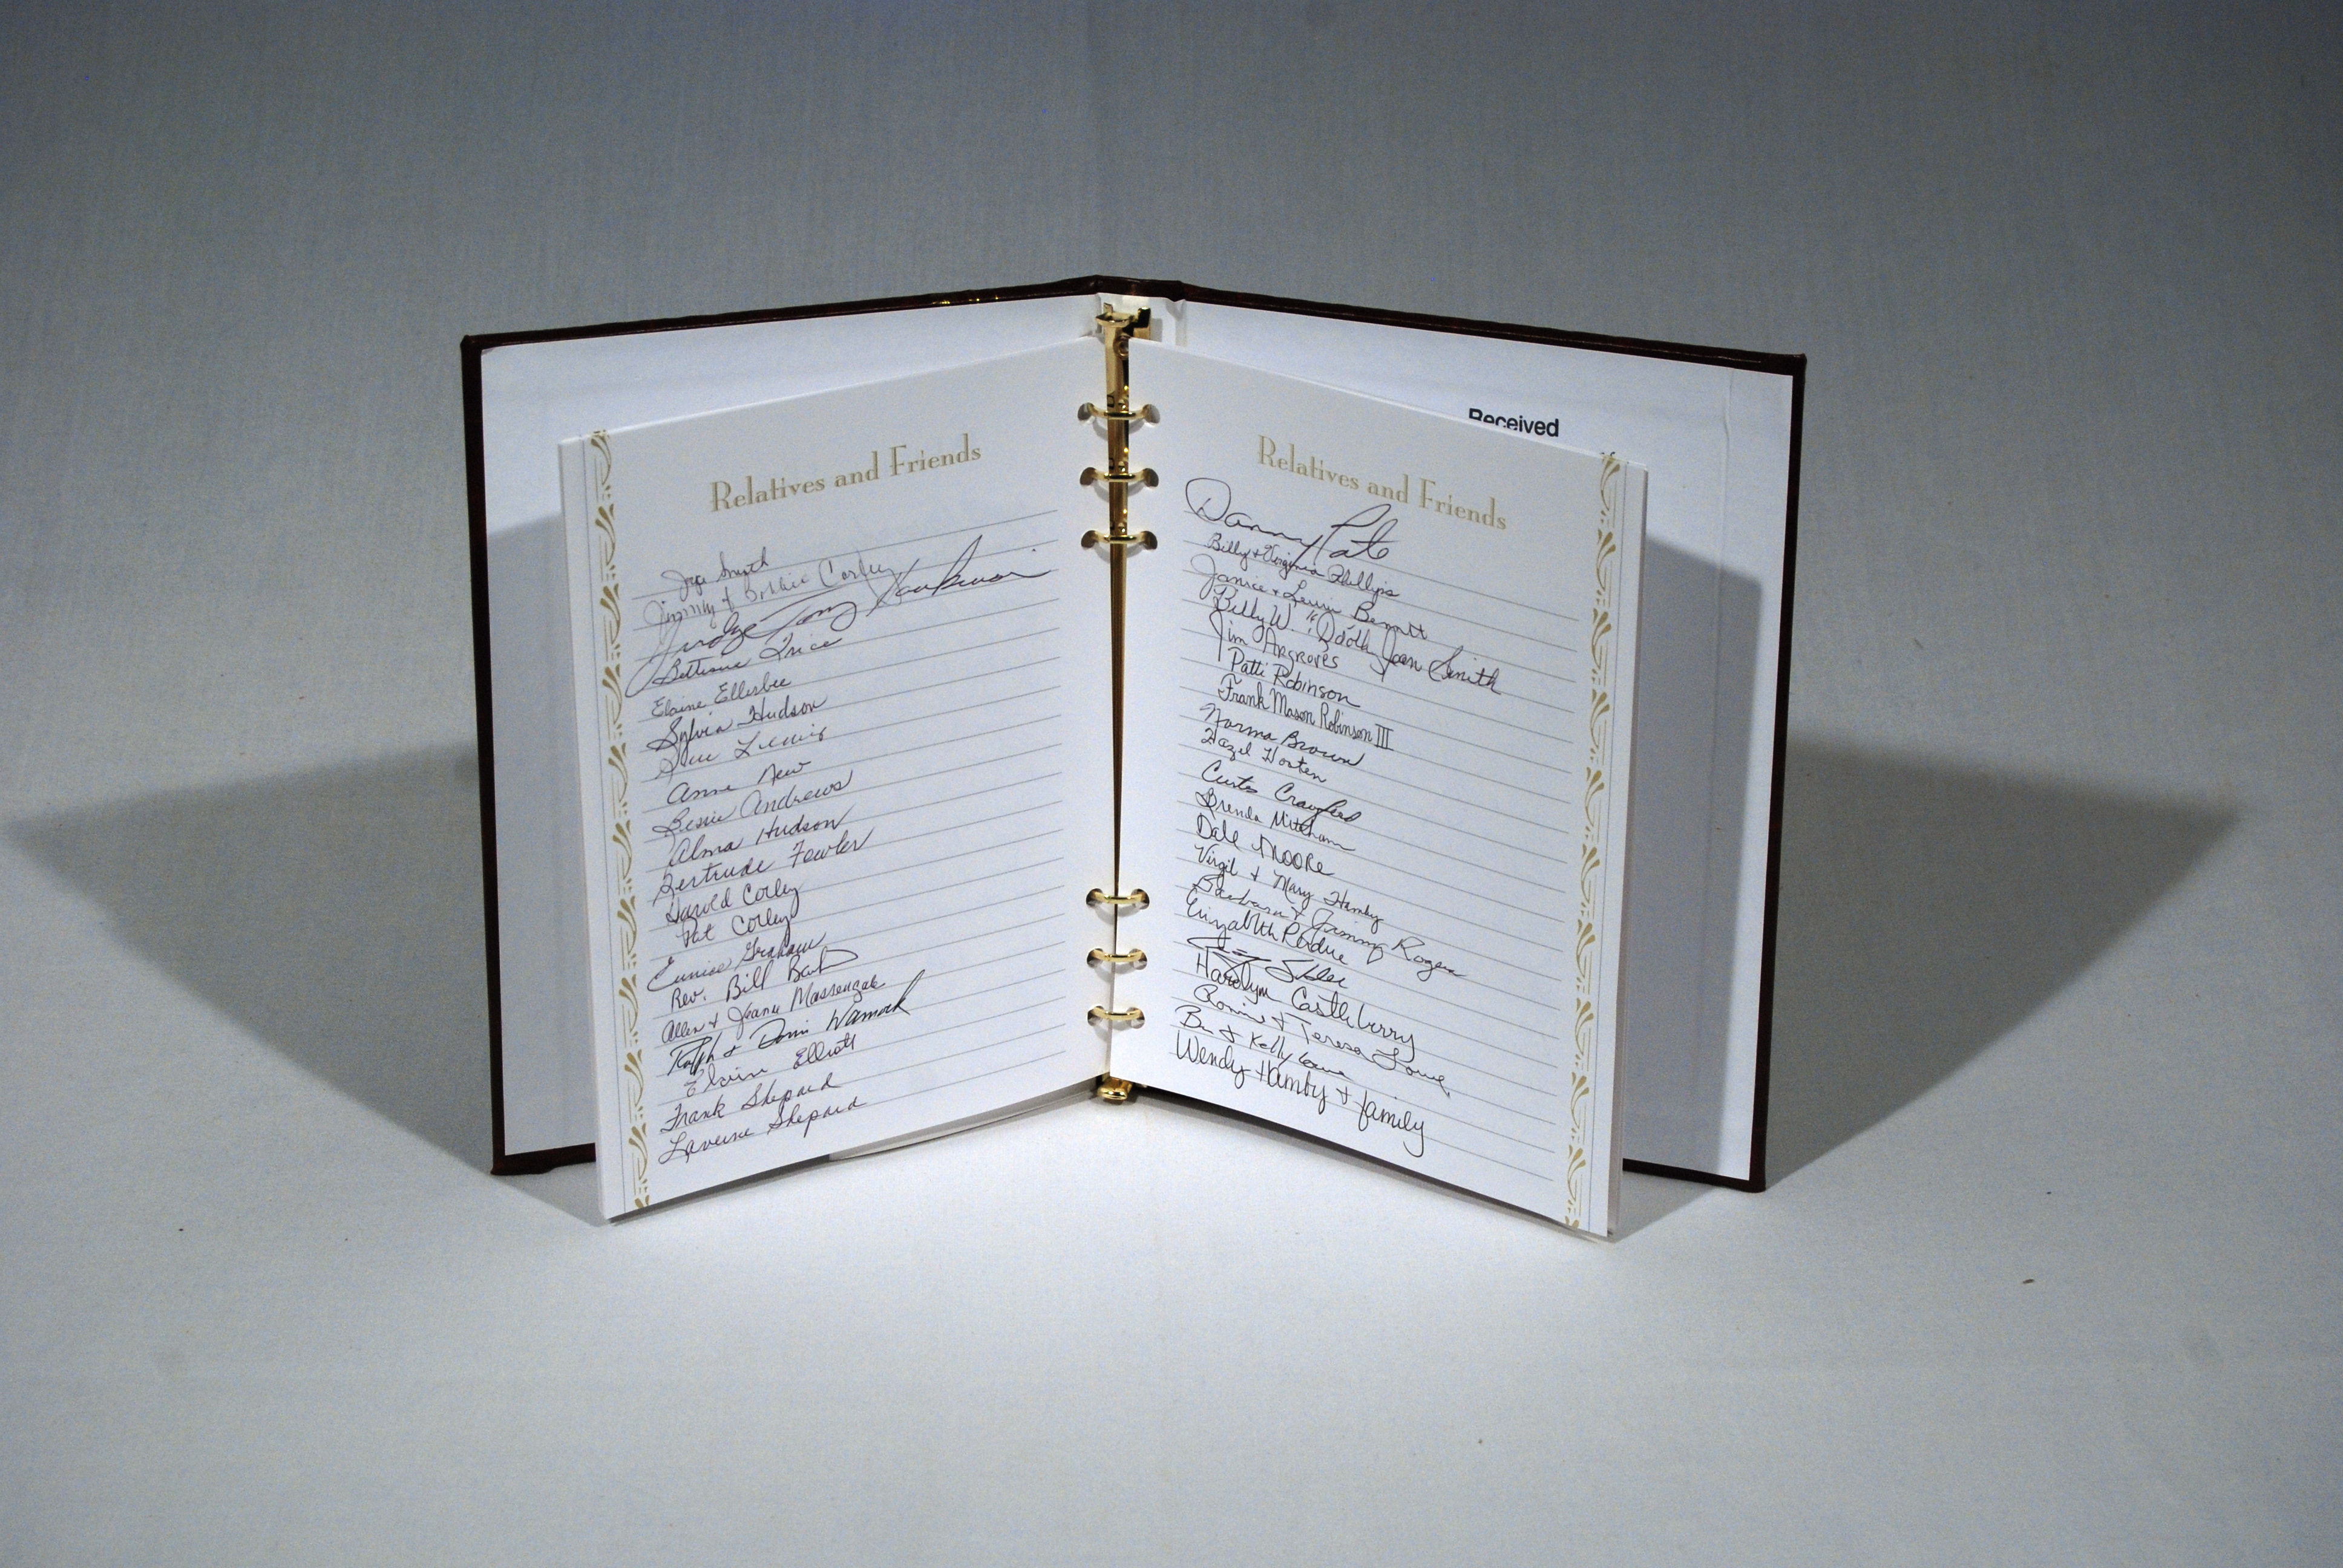 Relatives and Friends
Smith
Jimmy & Corley
Judge Tony
Price
Elaine Ellerbee
Sylvia Hudson
Sue Lewis
Anne New
Bessie Andrews
Alma Hudson
Gertrude Fowler
Harold Corley
Pat Corley
Eunice Graham
Rev. Bill
Allen + Jeanie Massengale
Ralph + Womack
Elaine Elliott
Frank Shepard
Laverne Shepard
Received
Relatives and Friends
Danny Pate
Billy + Virginia Phillips
Janice + Bennett
Billy W. Jean Smith
Jim Argroves
Patti Robinson
Frank Mason Robinson III
Norma Brown
Hazel
Curtis Crawford
Brenda Mitcham
Dale MOORE
Virgil + Mary Hamby
Barbara + Jimmy Rogers
Elizabeth Perdue
Harolyn Castleberry
Ronnie + Teresa Lowe
Ben + Kelly Lowe
Wendy Hamby + family